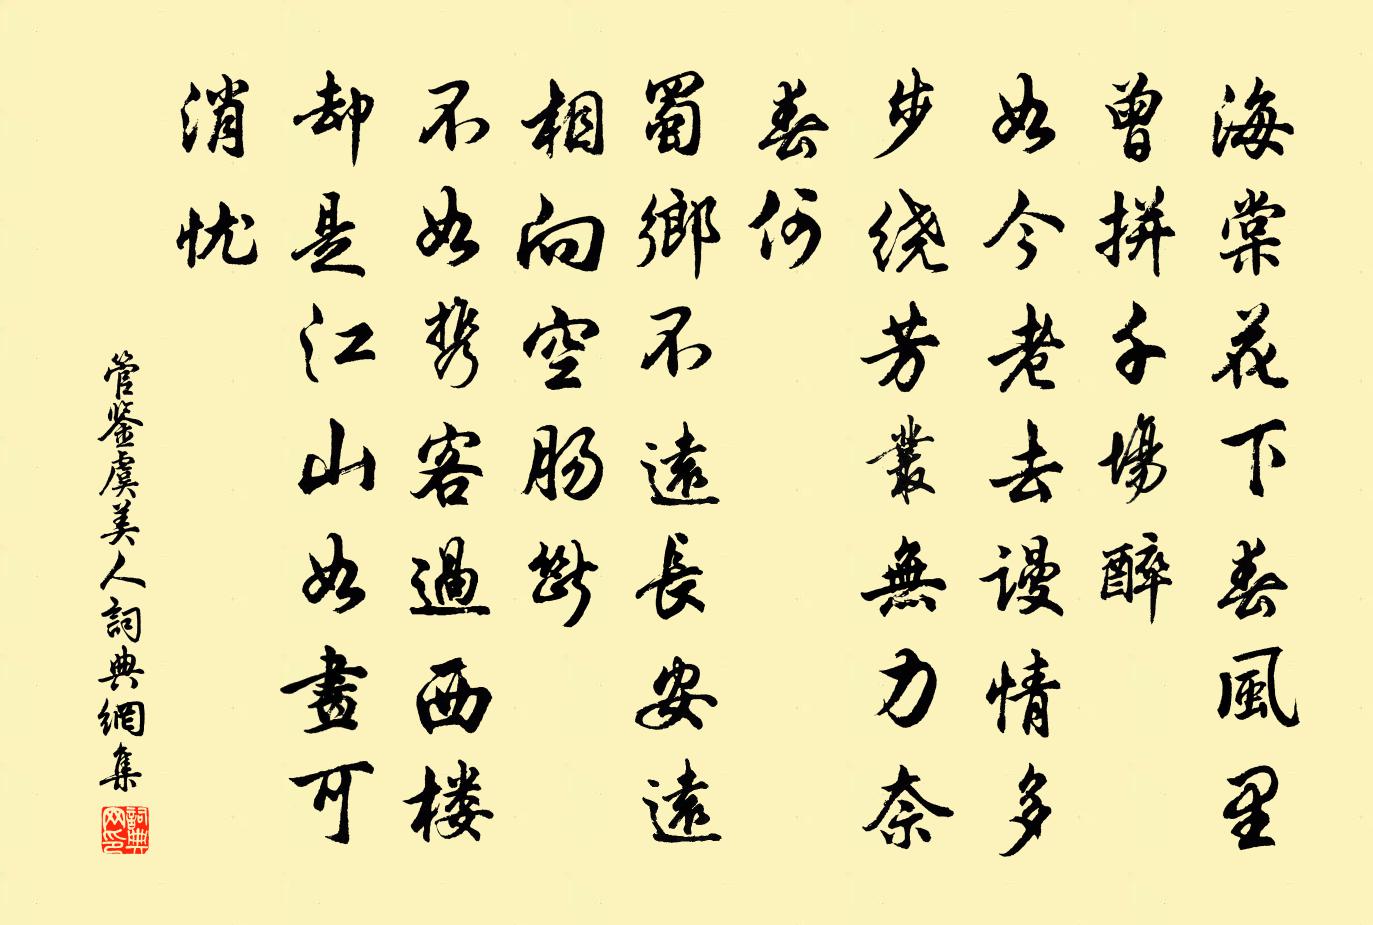 海棠花下春風里
曾拼千場醉
如今老去謾情多
步绕芳叢無力奈
春何
蜀鄉不遠長安遠
相向空肠斷
不如携客過西楼
却是江山如畫可
消忧
管鉴虞美人詞典網集
詞典网印